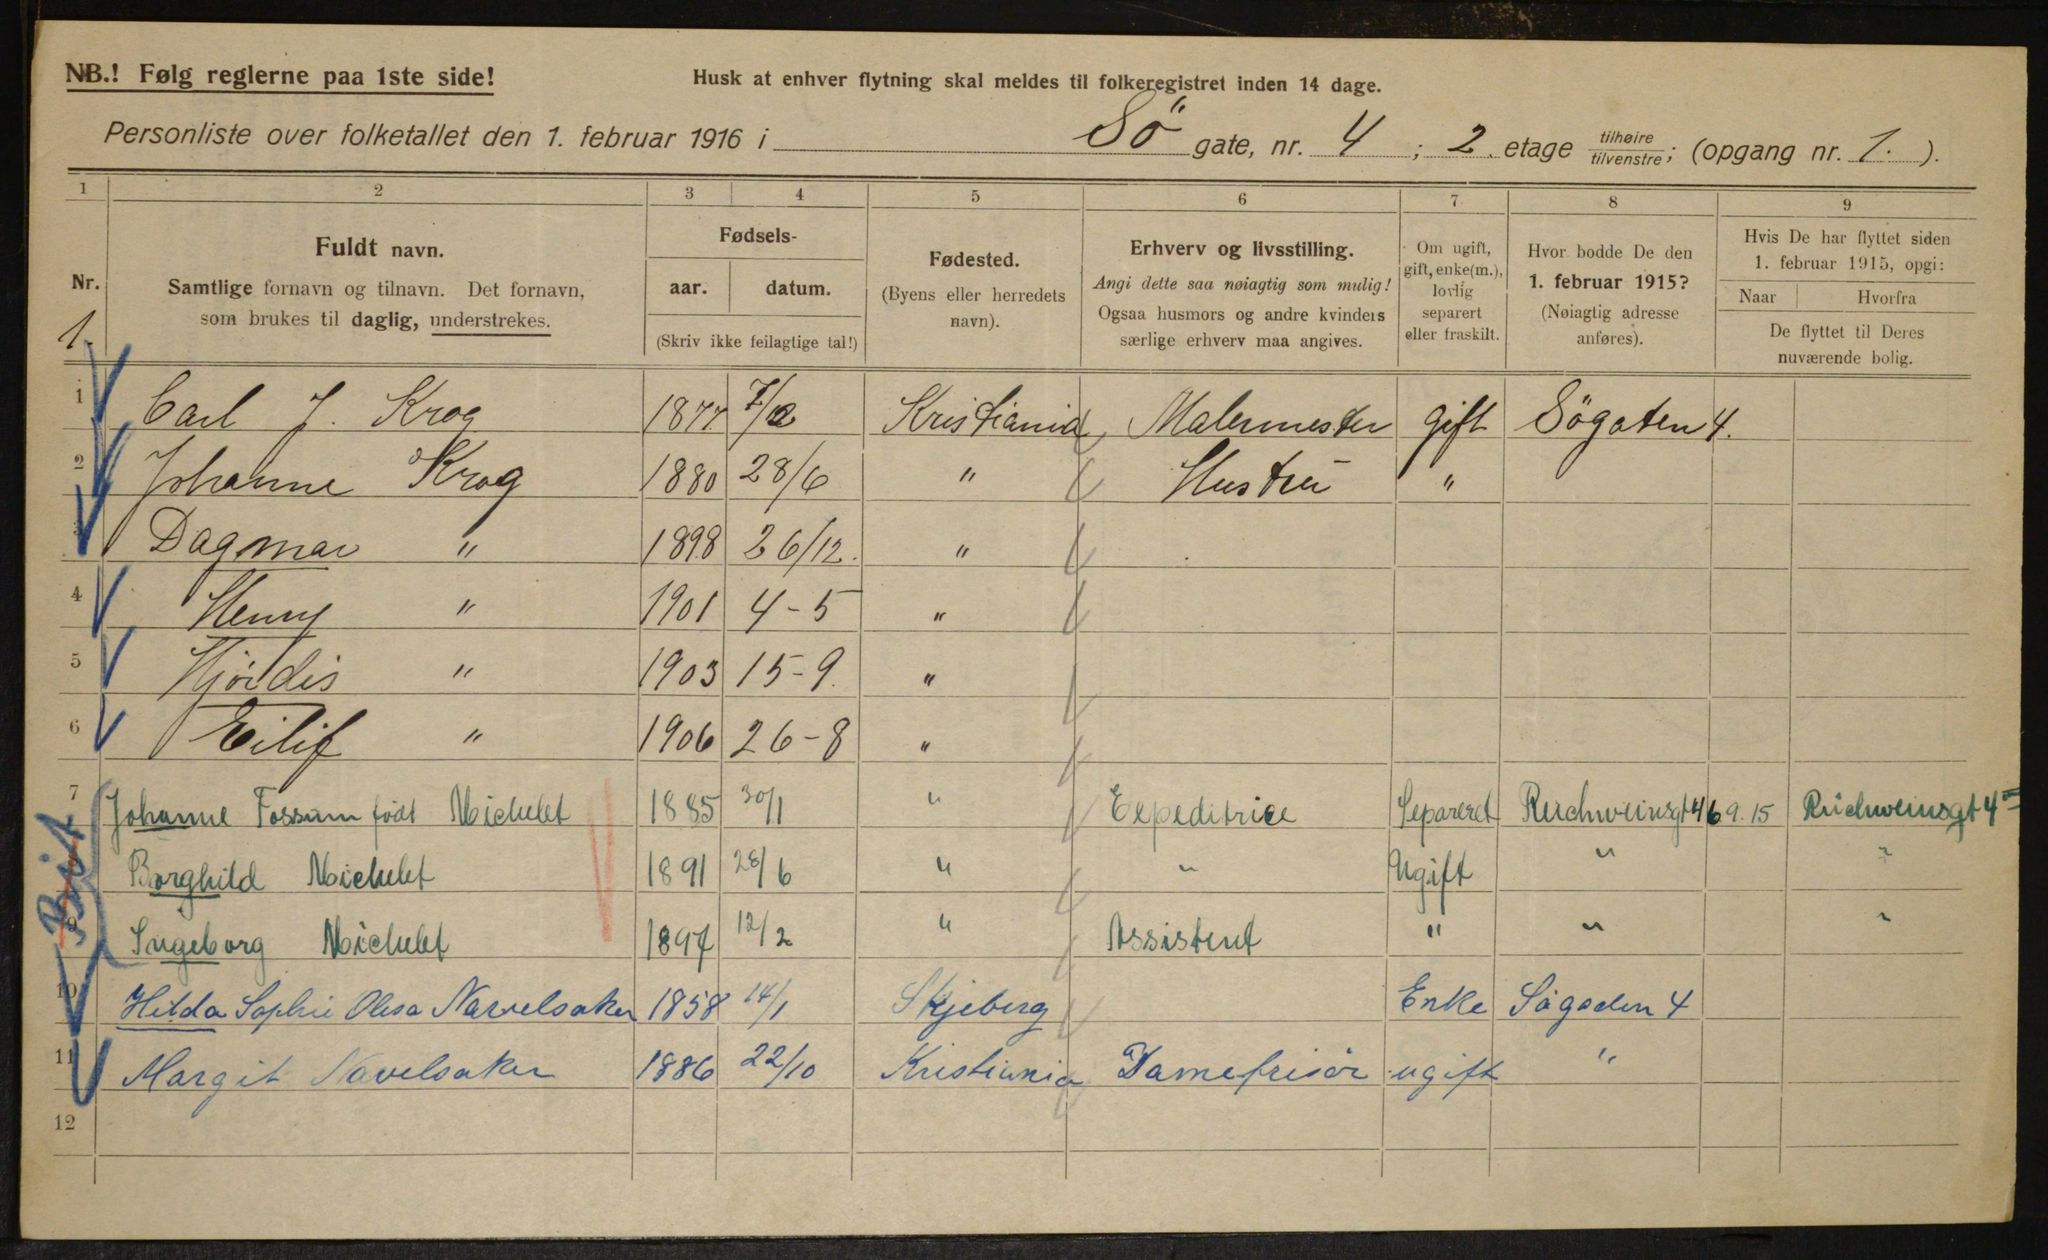 NB.! Følg reglerne paa 1ste side!
Husk at enhver flytning skal meldes til folkeregistret inden 14 dage.
Personliste over folketallet den 1. februar 1916 i Sö gate, nr. 4 ; 2 etage tilhøire/tilvenstre; (opgang nr. 1. ).
1 2 3 4 5 6 7 8 9
Nr.
1.
Fuldt navn.
Samtlige fornavn og tilnavn. Det fornavn,
som brukes til daglig, understrekes.
Fødsels-
aar. datum.
(Skriv ikke feilagtige tal!)
Fødested.
(Byens eller herredets
navn).
Erhverv og livsstilling.
Angi dette saa nøiagtig som mulig!
Ogsaa husmors og andre kvinders
særlige erhverv maa angives.
Om ugift,
gift, enke(m.),
lovlig
separert
eller fraskilt.
Hvor bodde De den
1. februar 1915?
(Nøiagtig adresse
anføres).
Hvis De har flyttet siden
1. februar 1915, opgi:
Naar Hvorfra
De flyttet til Deres
nuværende bolig.
1 Carl J. Krog 1877 Kristiania Malermester gift Sögaten 4.
2 Johanne Krog 1880 28/6 " Hustru "
3 Dagmar " 1898 26/12. "
4 Henry " 1901 4-5 "
5 Hjördis " 1903 15-9. "
6 Eilif " 1906 26-8 "
7 Johanne Fossum født Michelet 1885 30/1 " Expeditrice Separeret 6 9. 15
Borghild Michelet 1891 28/6 " " Ugift " "
9 Ingeborg Michelet 1897 12/2 " Assistent " " "
10 Hilda Sophie Olesa 1858 14/1 Skjeberg Enke Søgaden 4
11 Margit Navelsaker 1886 22/10 Kristiania Damefrisør ugift "
12